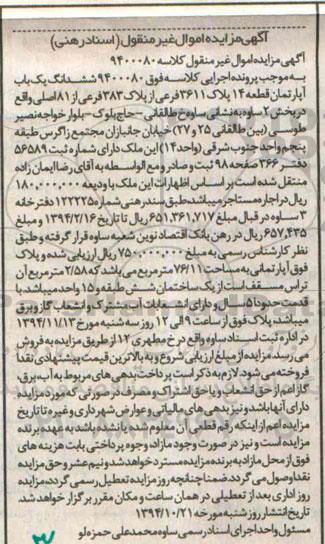 آگهی مزایده اموال غیر منقول (اسناد رهنی)
آگهی مزایده اموال غیر منقول کلاسه ۹۴۰۰۰۸۰
به موجب پرونده اجرایی کلاسه فوق ۹۴۰۰۰۸۰ ششدانگ یک باب
آپارتمان قطعه ۱۴ پلاک ۳۶۱۱ فرعی از پلاک ۳۸۳ فرعی از ۸۱ اصلی واقع
در بخش ۲ ساوه به نشانی ساوه خ طالقانی - حاج بلوک - بلوار خواجه نصیر
طوسی (بین طالقانی ۲۵ و ۲۷) خیابان جانبازان مجتمع زاگرس طبقه
پنجم واحد جنوب شرقی (واحد ۱۴) این ملک دارای شماره ثبت ۵۶۵۸۹
دفتر ۳۶۶ صفحه ۹۸ ثبت و صادر و مع الواسطه به آقای رضا ایمان زاده
منتقل شده است بر اساس اظهارات این ملک با ودیعه ۱۸۰,۰۰۰,۰۰۰
ریال در اجاره مستاجر میباشد طبق سند رهنی شماره ۱۲۲۲۲۵ دفترخانه
۳ ساوه در قبال مبلغ ۶۵۱,۳۶۱,۷۱۷ ریال تا تاریخ ۱۳۹۴/۲/۱۶ و مبلغ
۶۵۷,۴۳۵ ریال در رهن بانک اقتصاد نوین شعبه ساوه قرار گرفته و طبق
نظر کارشناس رسمی به مبلغ ۷۵۰,۰۰۰,۰۰۰ ریال ارزیابی شده و پلاک
فوق آپارتمانی به مساحت ۷۶/۱۱ متر مربع می باشد که ۲/۵۸ متر مربع آن
تراس مسقف است از یک ساختمان شش طبقه و ۱۵ واحد میباشد با
قدمت حدودا ۵ سال و دارای انشعابات آب مشترک و انشعاب گاز و برق
میباشد، پلاک فوق از ساعت ۹ الی ۱۲ روز سه شنبه مورخ ۱۳۹۴/۱۱/۱۳
در اداره ثبت اسناد ساوه واقع در خ مطهری ۱۲ از طریق مزایده به فروش
می رسد، مزایده از مبلغ ارزیابی شروع و به بالاترین قیمت پیشنهادی نقدا
فروخته می شود. لازم به ذکر است پرداخت بدهی های مربوط به آب، برق،
گاز اعم از حق انشعاب و یا حق اشتراک و مصرف در صورتی که مورد مزایده
دارای آنها باشد و نیز بدهی های مالیاتی و عوارض شهرداری و غیره تا تاریخ
مزایده اعم از اینکه رقم قطعی آن معلوم شده یا نشده باشد به عهده برنده
مزایده است و نیز در صورت وجود مازاد وجوه پرداختی بابت هزینه های
فوق از محل مازاد به برنده مزایده مسترد خواهد شد و نیم عشر و حق مزایده
نقدا وصول می گردد. ضمنا چنانچه روز مزایده تعطیل رسمی گردد، مزایده
روز اداری بعد از تعطیلی در همان ساعت و مکان مقرر برگزار خواهد شد.
تاریخ انتشار روز شنبه مورخه ۱۳۹۴/۱۰/۲۱
مسئول واحد اجرای اسناد رسمی ساوه محمدعلی حمزه لو